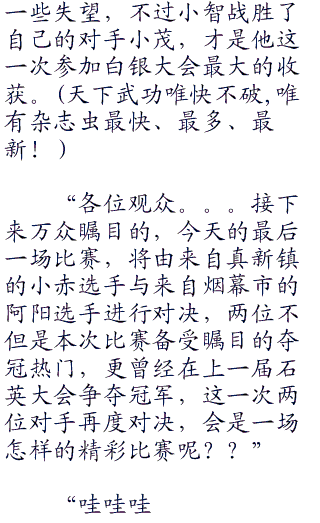 一些失望，不过小智战胜了
自己的对手小茂，才是他这
一次参加白银大会最大的收
获。(天下武功唯快不破,唯
有杂志虫最快、最多、最
新！)
“各位观众。。。接下
来万众瞩目的，今天的最后
一场比赛，将由来自真新镇
的小赤选手与来自烟幕市的
阿阳选手进行对决，两位不
但是本次比赛备受瞩目的夺
冠热门，更曾经在上一届石
英大会争夺冠军，这一次两
位对手再度对决，会是一场
怎样的精彩比赛呢？？”
“哇哇哇